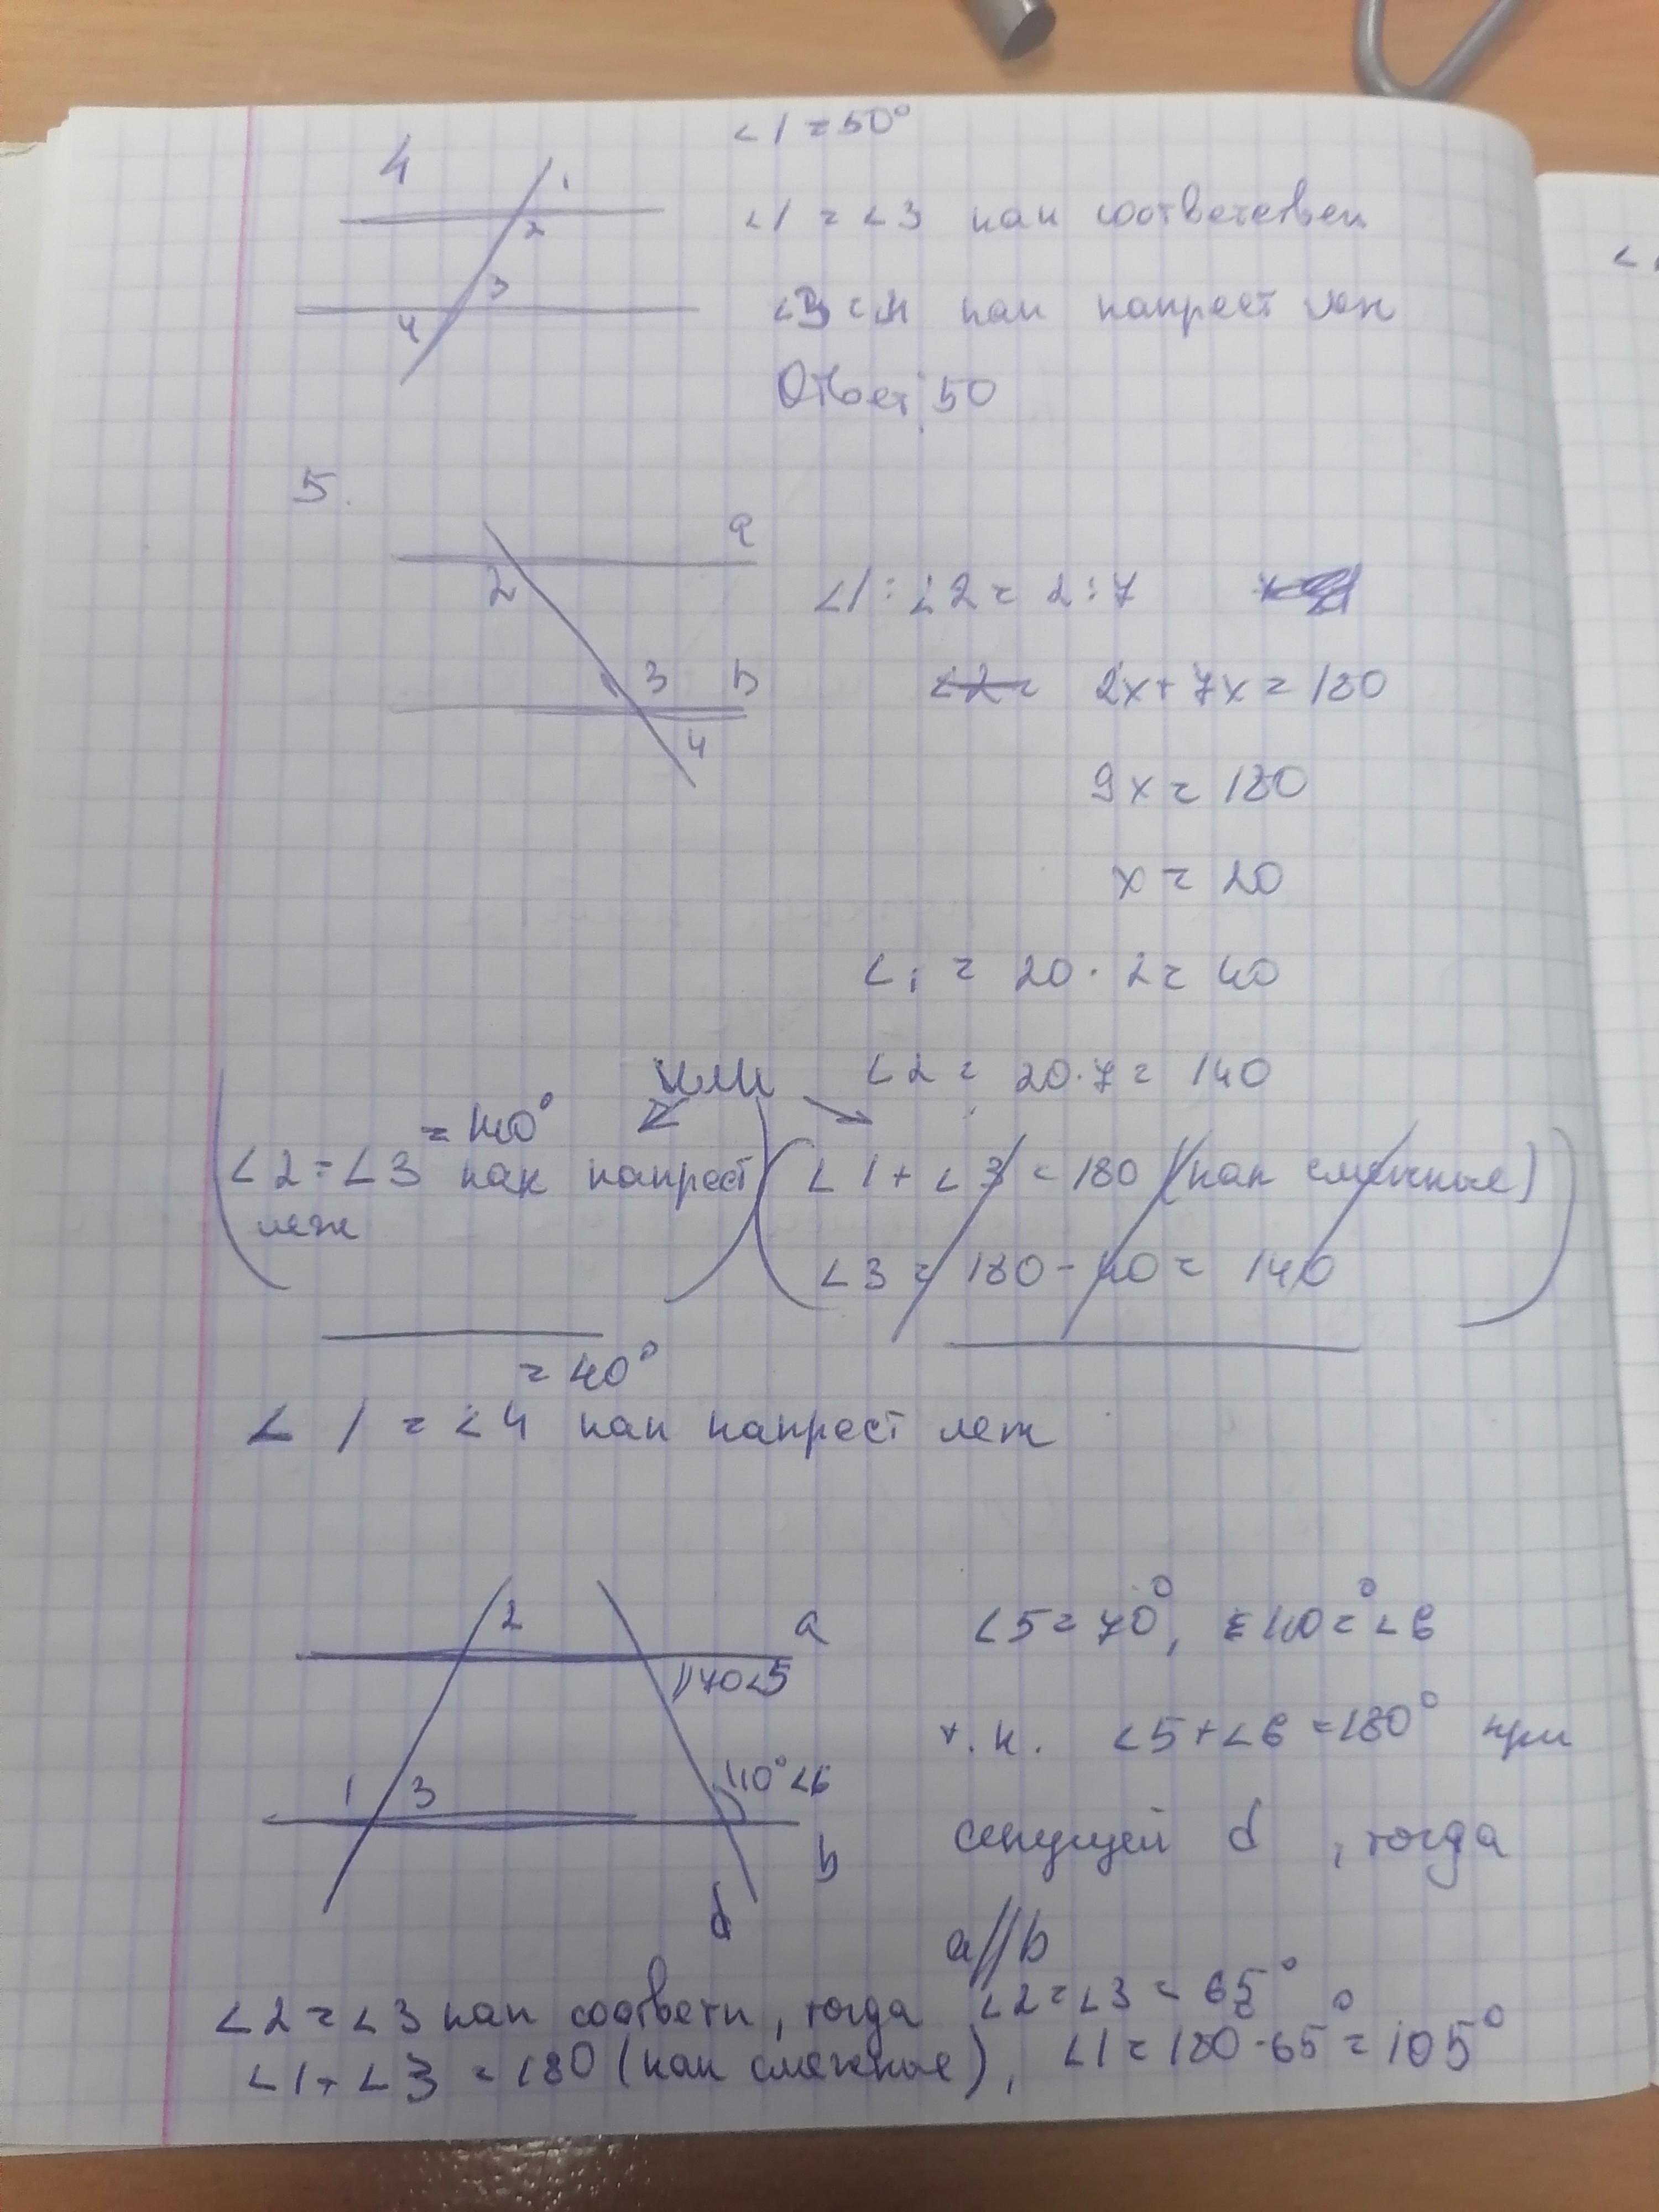 4
∠1 = 50°
1
2
∠1 = ∠3 как соответствен
3
4
∠3 = ∠4 как напрест леж
Ответ: 50
5.
a
2
∠1 : ∠2 = 2:7
3
b
∠2 = 2x + 7x = 180
4
9x = 180
x = 20
∠1 = 20 · 2 = 40
или
∠2 = 20·7 = 140
= 140°
∠2 = ∠3 как напрест
леж
∠1 + ∠3 = 180 (как смежные)
∠3 = 180 - 40 = 140
= 40°
∠1 = ∠4 как напрест леж
2
a
70 ∠5
∠5 = 70°, 110° = ∠6
1
3
110° ∠6
т.к. ∠5 + ∠6 = 180° при
b
секущей d, тогда
d
a//b
∠2 = ∠3 как соответн, тогда ∠2 = ∠3 = 65°
∠1 + ∠3 = 180 (как смежные), ∠1 = 180 - 65° = 105°